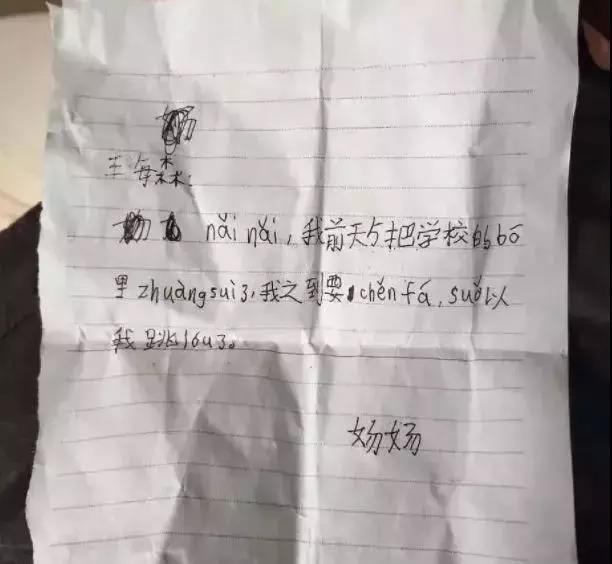 王每森:
nǎi nǎi, 我前天与把学校的bō
里zhuàngsuì3,我之到要chěn fá, suǒ以
我跳lóu3。
妫妫